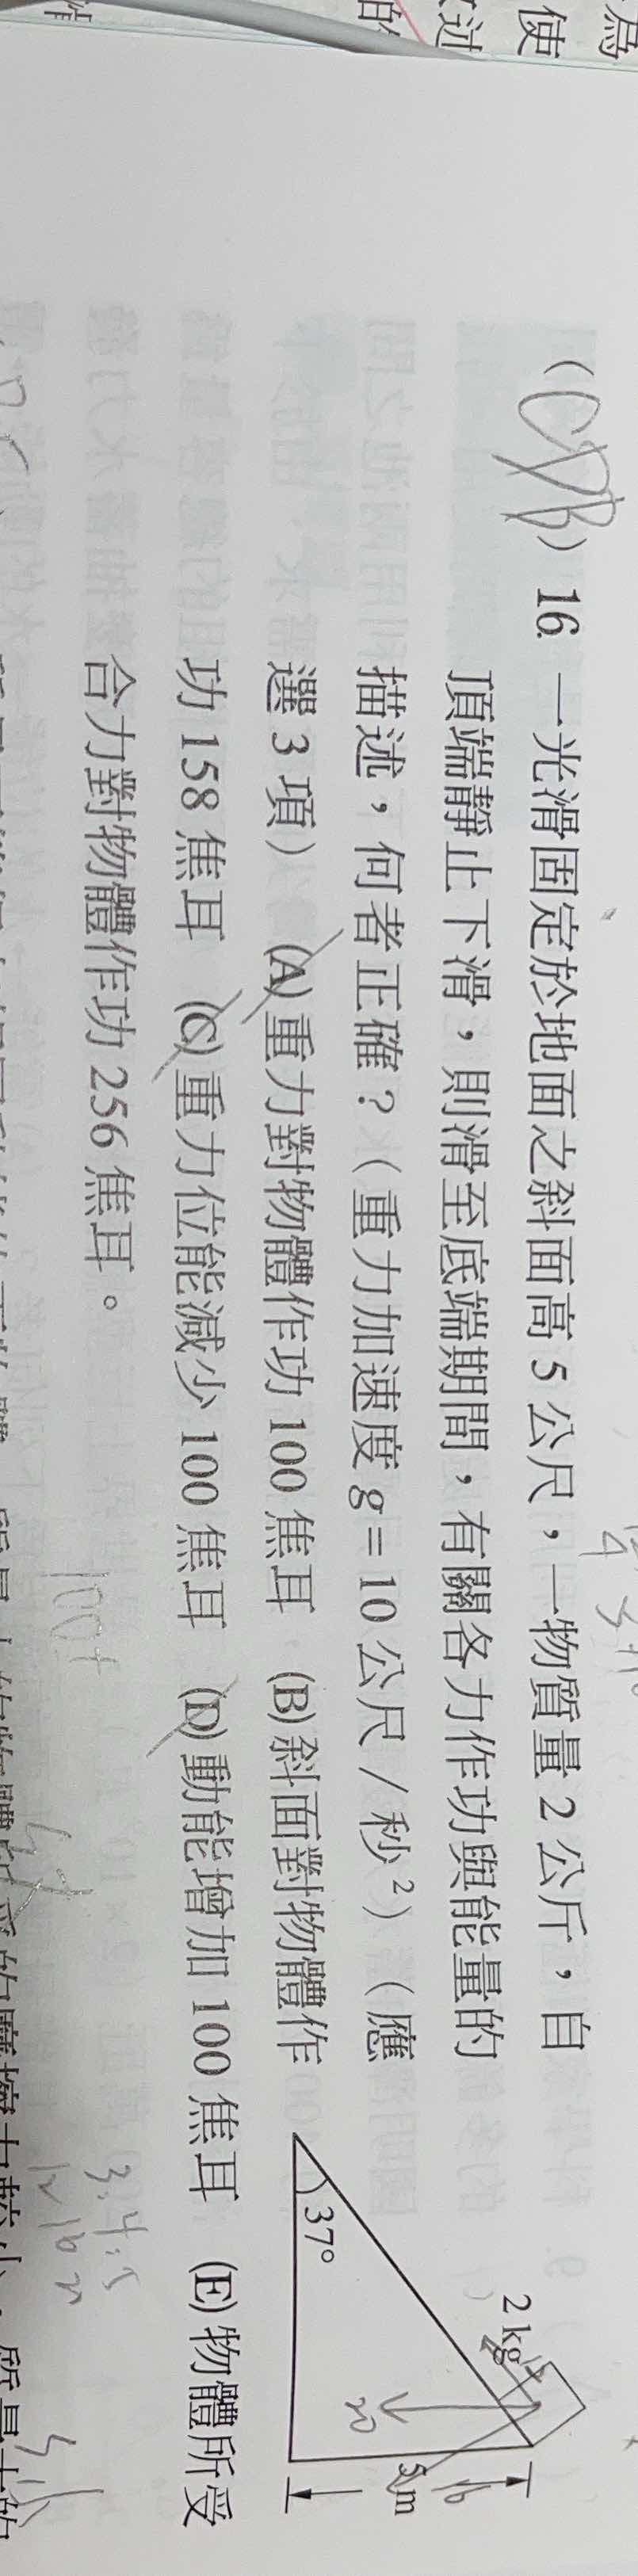 (CDB) 16. 一光滑固定於地面之斜面高 5 公尺，一物質量 2 公斤，自
頂端靜止下滑，則滑至底端期間，有關各力作功與能量的
描述，何者正確？（重力加速度 g = 10 公尺／秒²）（應
選 3 項） (A)重力對物體作功 100 焦耳 (B)斜面對物體作
功 158 焦耳 (C)重力位能減少 100 焦耳 (D)動能增加 100 焦耳 (E)物體所受
合力對物體作功 256 焦耳。
2 kg
37°
5 m
20
16